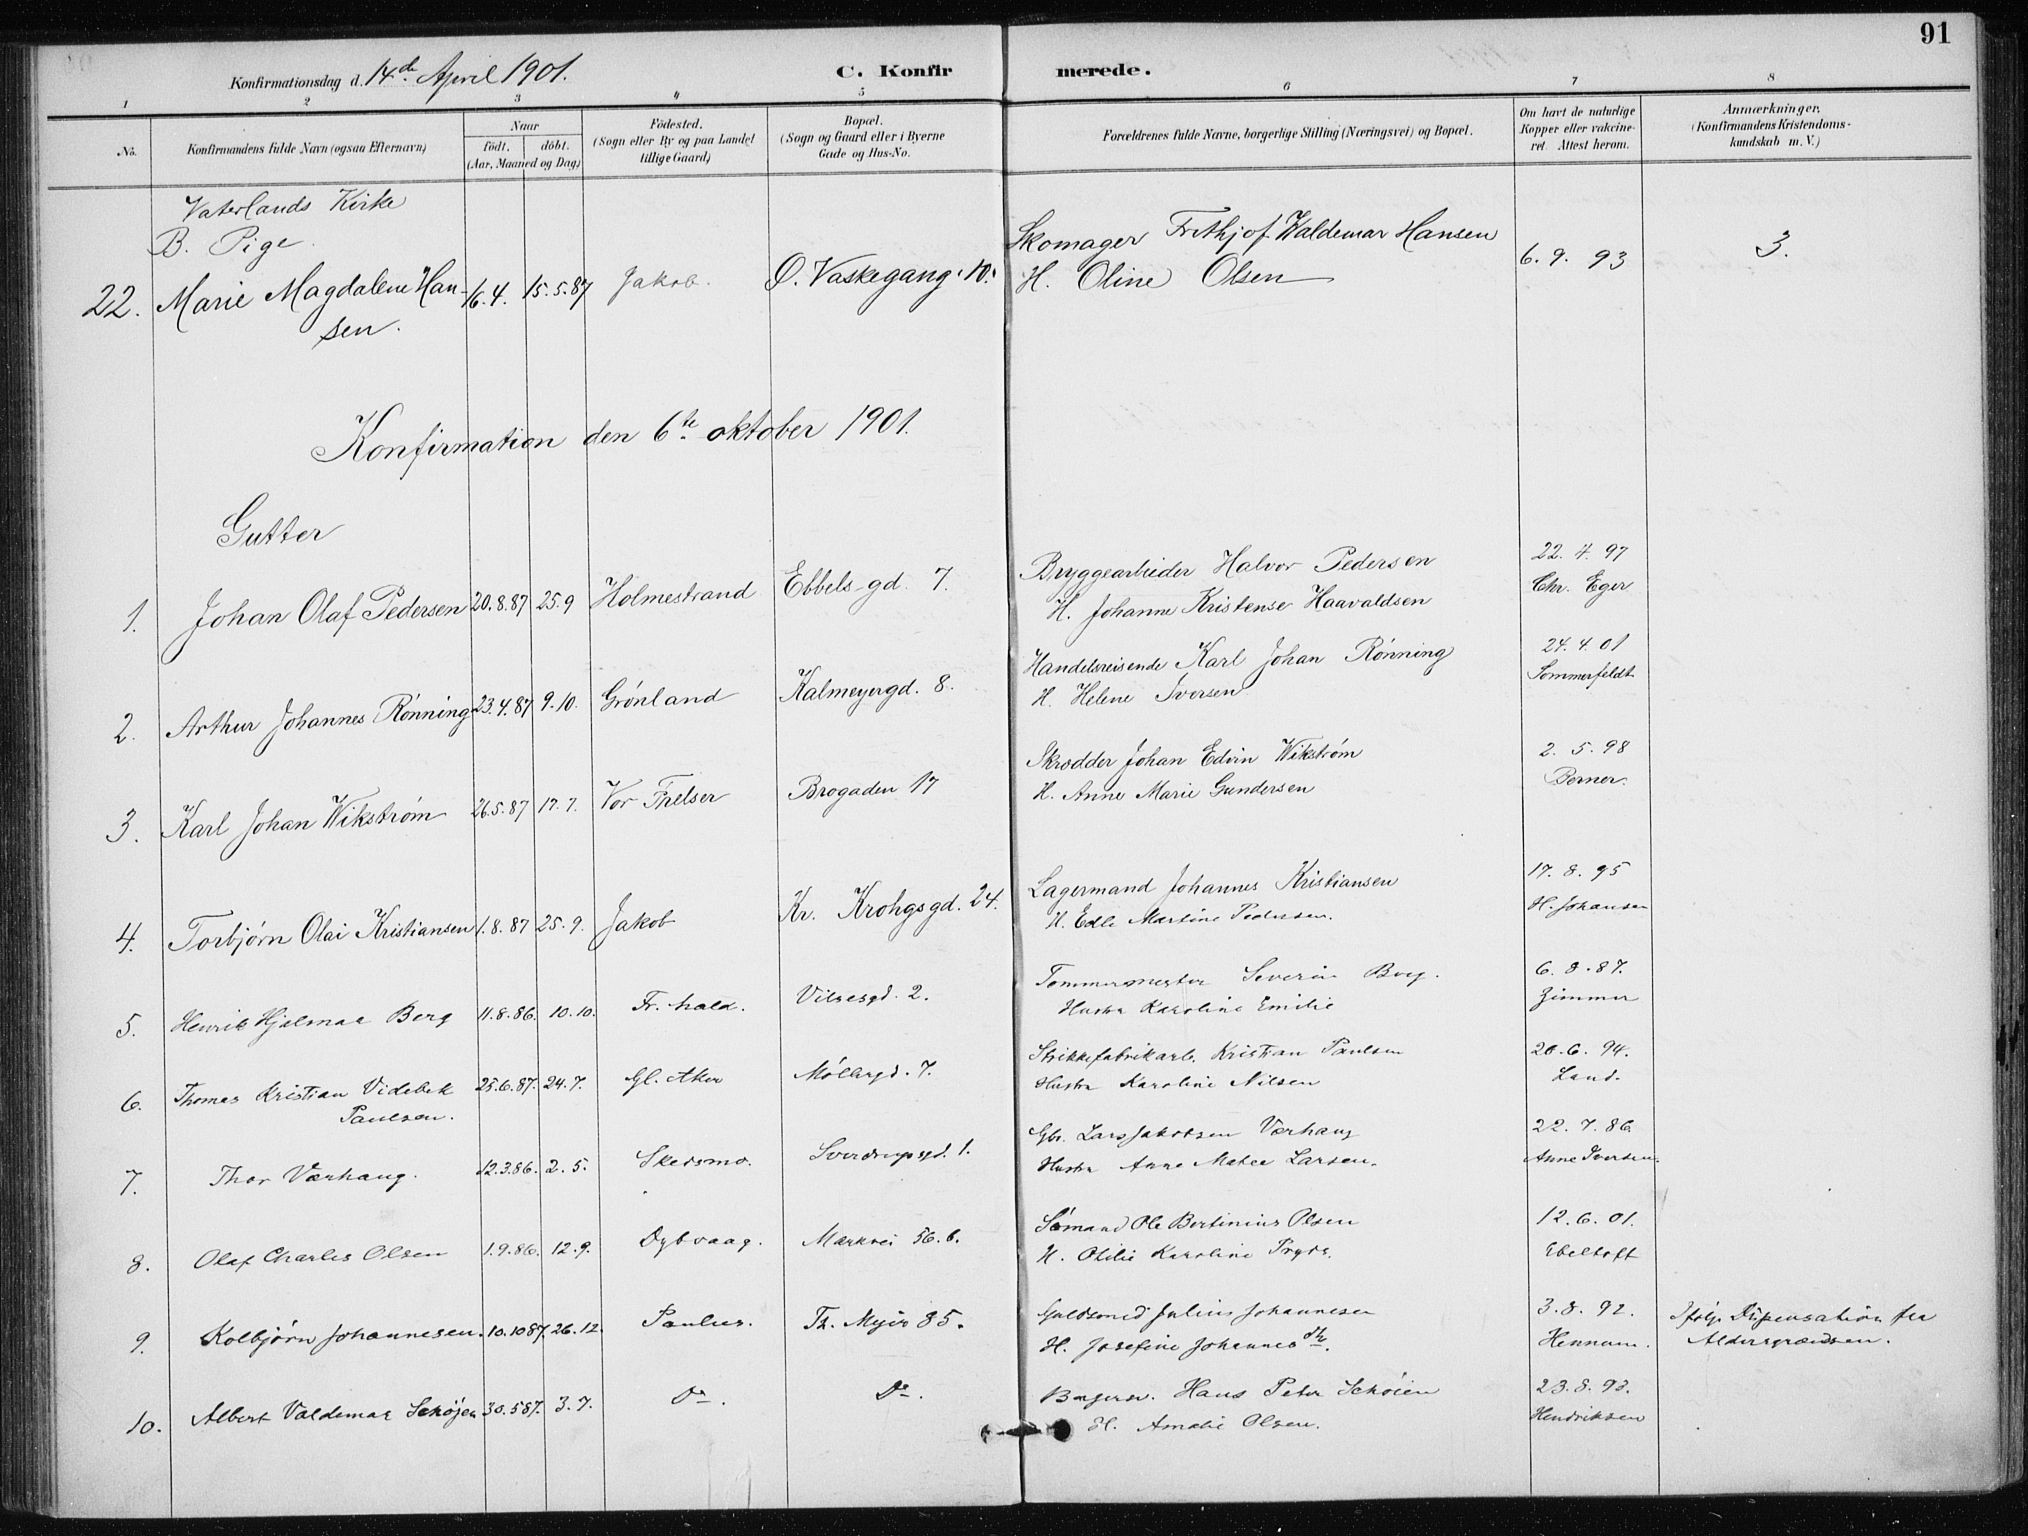 91
Konfirmationsdag d. 14de April 1901.
C. Konfirmerede.
1 2 3 4 5 6 7 8
No. Konfirmandens fulde Navn (ogsaa Efternavn) Naar født. døbt. (Aar, Maaned og Dag) Födested. (Sogn eller By og paa Landet tillige Gaard) Bopæl. (Sogn og Gaard eller i Byerne Gade og Hus-No. Forældrenes fulde Navne, borgerlige Stilling (Næringsvei) og Bopæl. Om havt de naturlige Kopper eller vakcineret. Attest herom. Anmærkninger. (Konfirmandens Kristendomskundskab m. V.)
Vaterlands Kirke
B. Pige.
22. Marie Magdalene Han- 16.4. 15.5.87 Jakob. Ø. Vaskegang 10. Skomager Frithjof Waldemar Hansen 6.9.93 3.
sen. H. Oline Olsen
Konfirmation den 6te oktober 1901.
Gutter
1. Johan Olaf Pedersen 20.8.87 25.9 Holmestrand Ebbels gd. 7. Bryggearbeider Halvor Pedersen 22.7.97
H. Johanne Kristense Haavaldsen Chr. Eger
2. Arthur Johannes Rønning 23.4.87 9.10. Grønland Kalmeyergd. 8. Handelsreisende Karl Johan Rønning 24.4.01
H. Helene Iversen Sommerfeldt
3. Karl Johan Wikstrøm 26.5.87 17.7. Vor Frelser Brogaden 17 Skrædder Johan Edvin Wikstrøm 2.5.98
H. Anne Marie Gundersen Berner.
4. Torbjørn Olai Kristiansen 1.8.87 25.9. Jakob Kr. Krohgsgd. 24. Lagermand Johannes Kristiansen 17.8.95
H. Edle Martine Pedersen. H. Johansen
5. Henrik Hjalmar Berg 11.8.86. 10.10. Fr. hald. Vilsesgd. 2. Tommermester Severin Berg. 6.8.87.
Hustr Karoline Emilie Zimmer
6. Thomas Kristian Videbek 25.6.87. 24.7. Gl. Aker Møllergd. 7. Strikkefabrikarb. Kristian Paulsen 20.6.94.
Paulsen. Hustr Karoline Nilsen Land.
7. Thor Værhaug. 12.3.86. 2.5. Skedsmo. Sverdrupsgd. 1. Gbr. Lars Jakobsen Værhaug 22.7.86
Hustr Anne Mathea Larsen. Anne Iversen.
8. Olaf Charles Olsen 1.9.86. 12.9. Dybvaag. Markvei 56.b. Sømand Ole Bertinius Olsen 12.6.01.
H. Otilie Karoline Ebeltoft
9. Kolbjørn Johannesen. 10.10 87. 26.12. Paulus. Th. Myir 85. Guldsmed Julius Johannesen 3.8.92. Ifølge Dispensation fra
H. Josefine Johannesdtr. Hennum. Aldersgrændsen.
10. Albert Valdemar Schøjen 30.5 87. 3.7. Do. Do. Hans Peter Schøien 23.8.93.
H. Amalie Olsen. Hendriksen